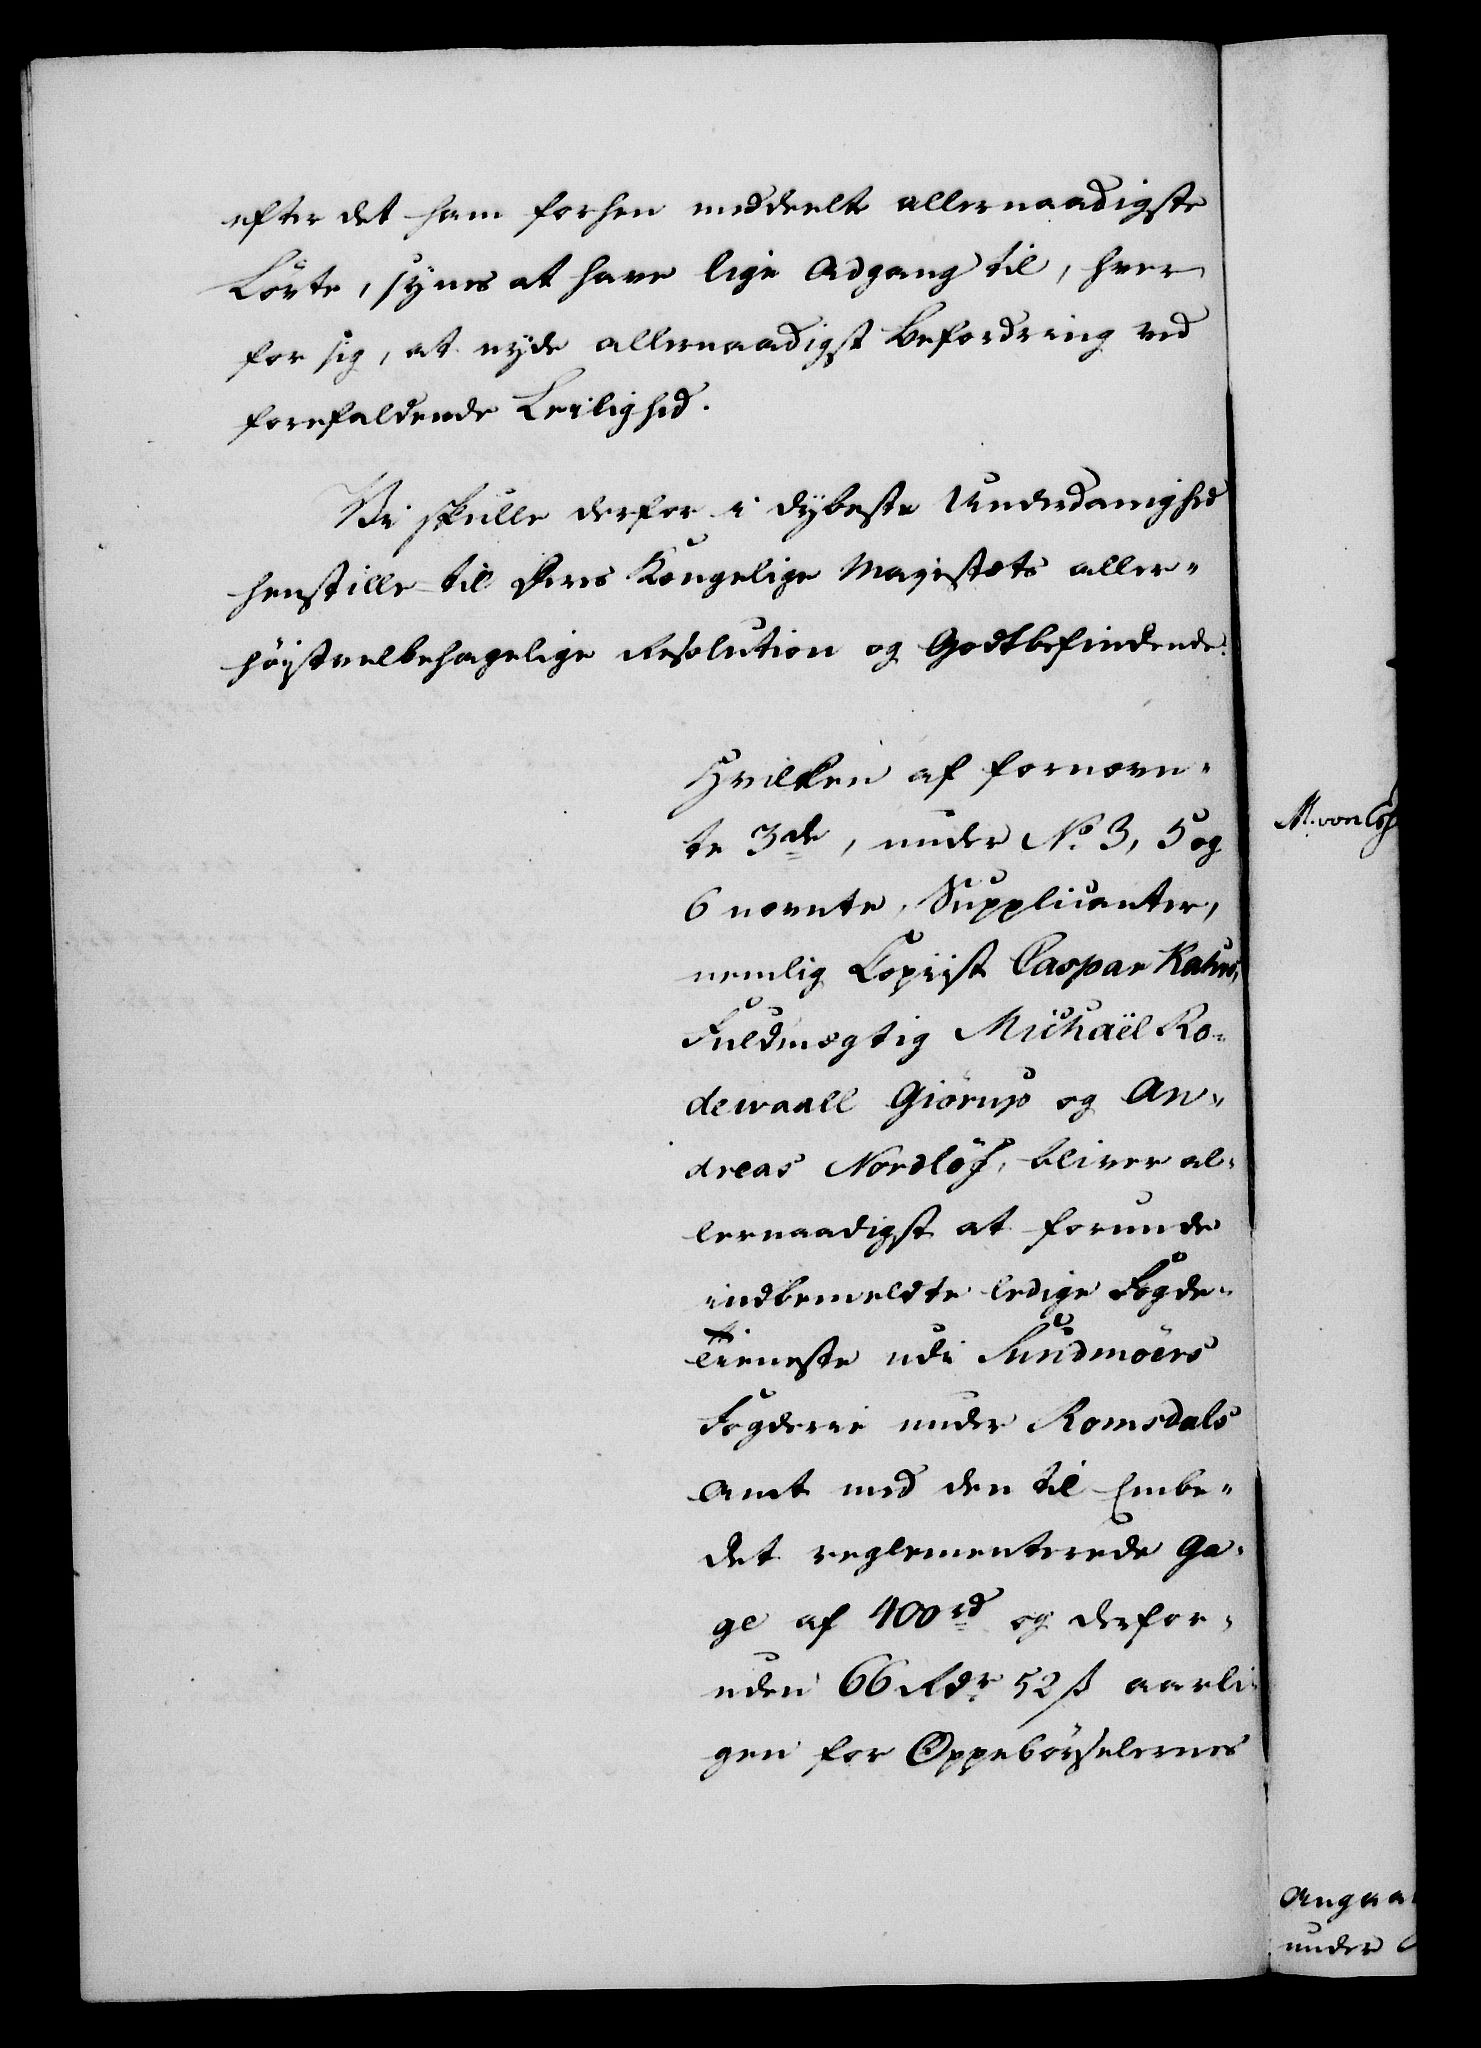 efter det ham forhen meddeelte allernaadigste
Løvte, synes at have lige Adgang til, hver
for sig, at nyde allernaadigst Befordring ved
forefaldende Leilighed.
Vi skulle derfor i dybeste Underdanighed
henstille til Deres Kongelige Majestæts aller-
höystvelbehagelige Resolution og Godtbefindende:
Hvilken af fornevn-
te 3de, under No. 3, 5 og
6 nevnte, Supplicanter,
nemlig Copiist Caspar Kahrs,
Fuldmægtig Michaël Ro-
dewaall Giörup og An-
dreas Nordlöf, bliver al-
lernaadigst at forunde
indbemeldte ledige Fogde-
Tieneste udi Sundmöers
Fogderie under Romsdals
Amt med den til Embe-
det reglementerede Ga-
ge af 400 rd og derfor-
uden 66 Rdr 52 ß aarli-
gen for Oppebörselernes
M. von
Angaa
under